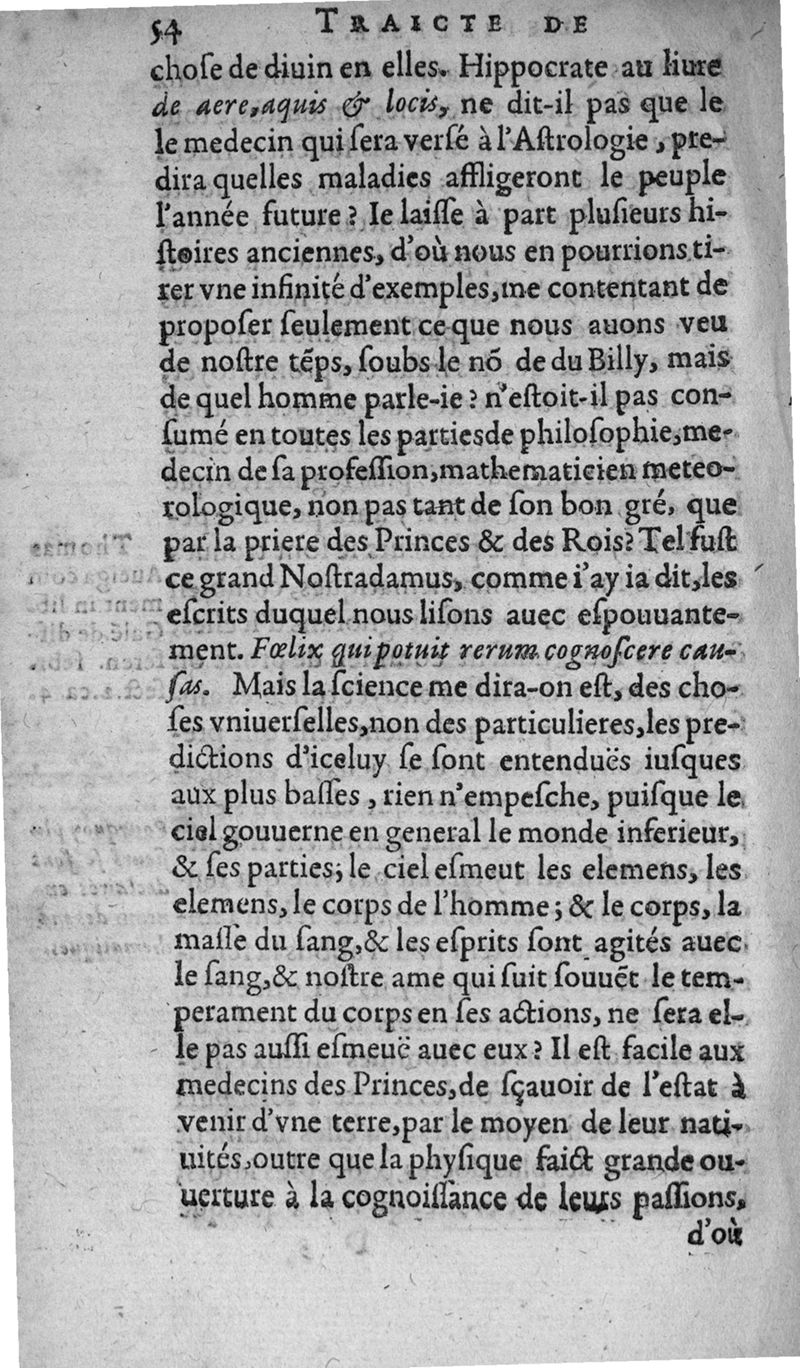 54 TRAICTE DE
choſe de diuin en elles. Hippocrate au liure
de aere, aquis & locis, ne dit-il pas que le
le medecin qui ſera verſé à l'Aſtrologie, pre-
dira quelles maladies affligeront le peuple
l'année future? Ie laiſſe à part pluſieurs hi-
ſtoires anciennes, d'où nous en pourrions ti-
rer vne infinité d'exemples, me contentant de
propoſer ſeulement ce que nous auons veu
de noſtre tẽps, ſoubs le nõ de du Billy, mais
de quel homme parle-ie? n'eſtoit-il pas con-
ſumé en toutes les partiesde philoſophie, me-
decin de ſa profeſſion, mathematicien meteo-
rologique, non pas tant de ſon bon gré, que
par la priere des Princes & des Rois? Tel fuſt
ce grand Noſtradamus, comme i'ay ia dit, les
eſcrits duquel nous liſons auec eſpouuante-
ment. Fœlix qui potuit rerum cognoſcere cau-
ſas. Mais la ſcience me dira-on eſt, des cho-
ſes vniuerſelles, non des particulieres, les pre-
dictions d'iceluy ſe ſont entenduës iuſques
aux plus baſſes, rien n'empeſche, puiſque le
ciel gouuerne en general le monde inferieur,
& ſes parties; le ciel eſmeut les elemens, les
elemens, le corps de l'homme; & le corps, la
maſſe du ſang, & les eſprits ſont agités auec
le ſang, & noſtre ame qui ſuit ſouuẽt le tem-
perament du corps en ſes actions, ne ſera el-
le pas auſſi eſmeuë auec eux? Il eſt facile aux
medecins des Princes, de ſçauoir de l'eſtat à
venir d'vne terre, par le moyen de leur nati-
uités, outre que la phyſique faict grande ou-
uerture à la cognoiſſance de leurs paſſions,
d'où